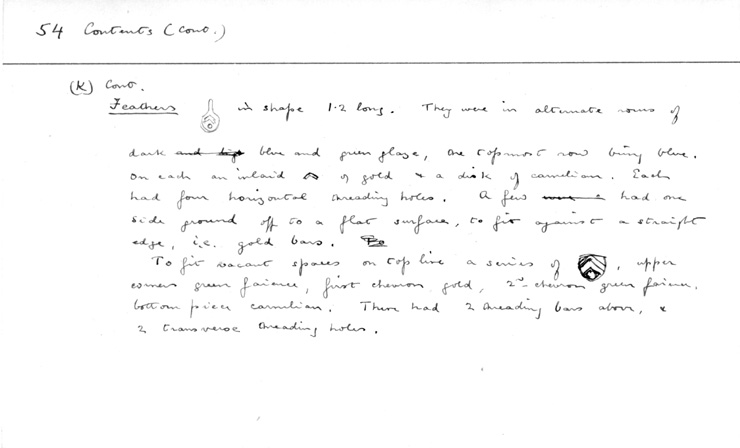 54 Contents (cont.)
(K) Cont.
Feathers in shape 1·2 long. They were in alternate rows of
dark and blue and green glaze, the topmost row being blue.
On each an inlaid ^ of gold + a disk of carnelian. Each
had four horizontal threading holes. A few had one
side ground off to a flat surface, to fit against a straight
edge, i.e. gold bars.
To fit vacant spaces on top line a series of , upper
corners green faience, first chevron gold, 2nd chevron green faience,
bottom piece carnelian. These had 2 threading bars above, &
2 transverse threading holes.